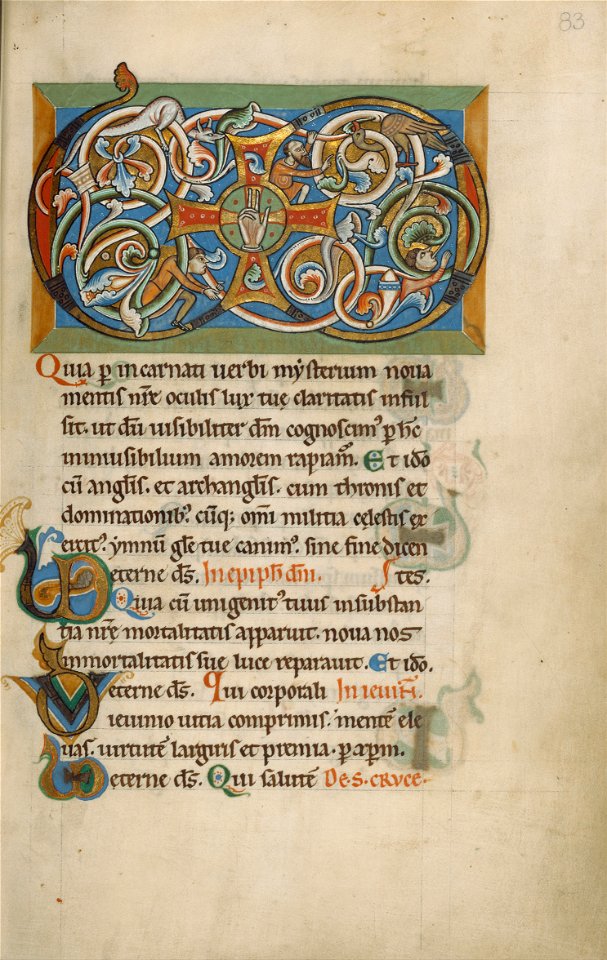 83
Quia p incarnati uerbi mysterium noua
mentis nr̄e oculis lux tuę claritatis inful
sit. ut dū uisibiliter dm̄ cognoscim᷒ p hc̄
inuisibilium amorem rapiam̄. Et ido
cū angłis. et archangłis. cum thronis et
dominationib᷒ cūq; omi militia cęlestis ex
ercit᷒. ymnū głe tue canim᷒. sine fine dicen
VD eterne ds̄. In epiph̄ dn̄i. tes.
Quia cū unigenit᷒ tuus in substan
tia nr̄ę mortalitatis apparuit. noua nos
immortalitatis suę luce reparauit. Et ido.
VD eterne ds̄. Qui corporali In ieiuń.
ieiunio uitia comprimis. mentē ele
uas. uirtutē largiris et premia. p xp̄m.
VD eterne ds̄. Qui salutē DE. S. CRVCE.